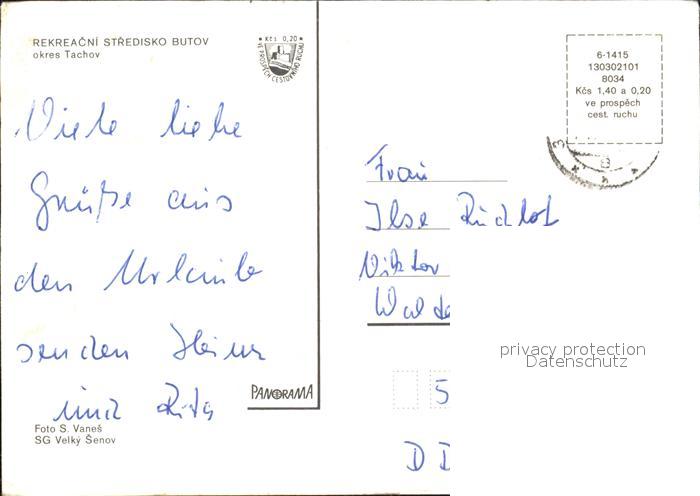 REKREAČNÍ STŘEDISKO BUTOV
okres Tachov
Kčs 0,20
VE PROSPĚCH CESTOVNÍHO RUCHU
6-1415
130302101
8034
Kčs 1,40 a 0,20
ve prospěch
cest. ruchu
Viele liebe
Grüße aus
dem Urlaub
senden Heinz
und Rita
Foto S. Vaneš
SG Velký Šenov
PANORAMA
Frau
Ilse
Viktor
5
privacy protection
Datenschutz